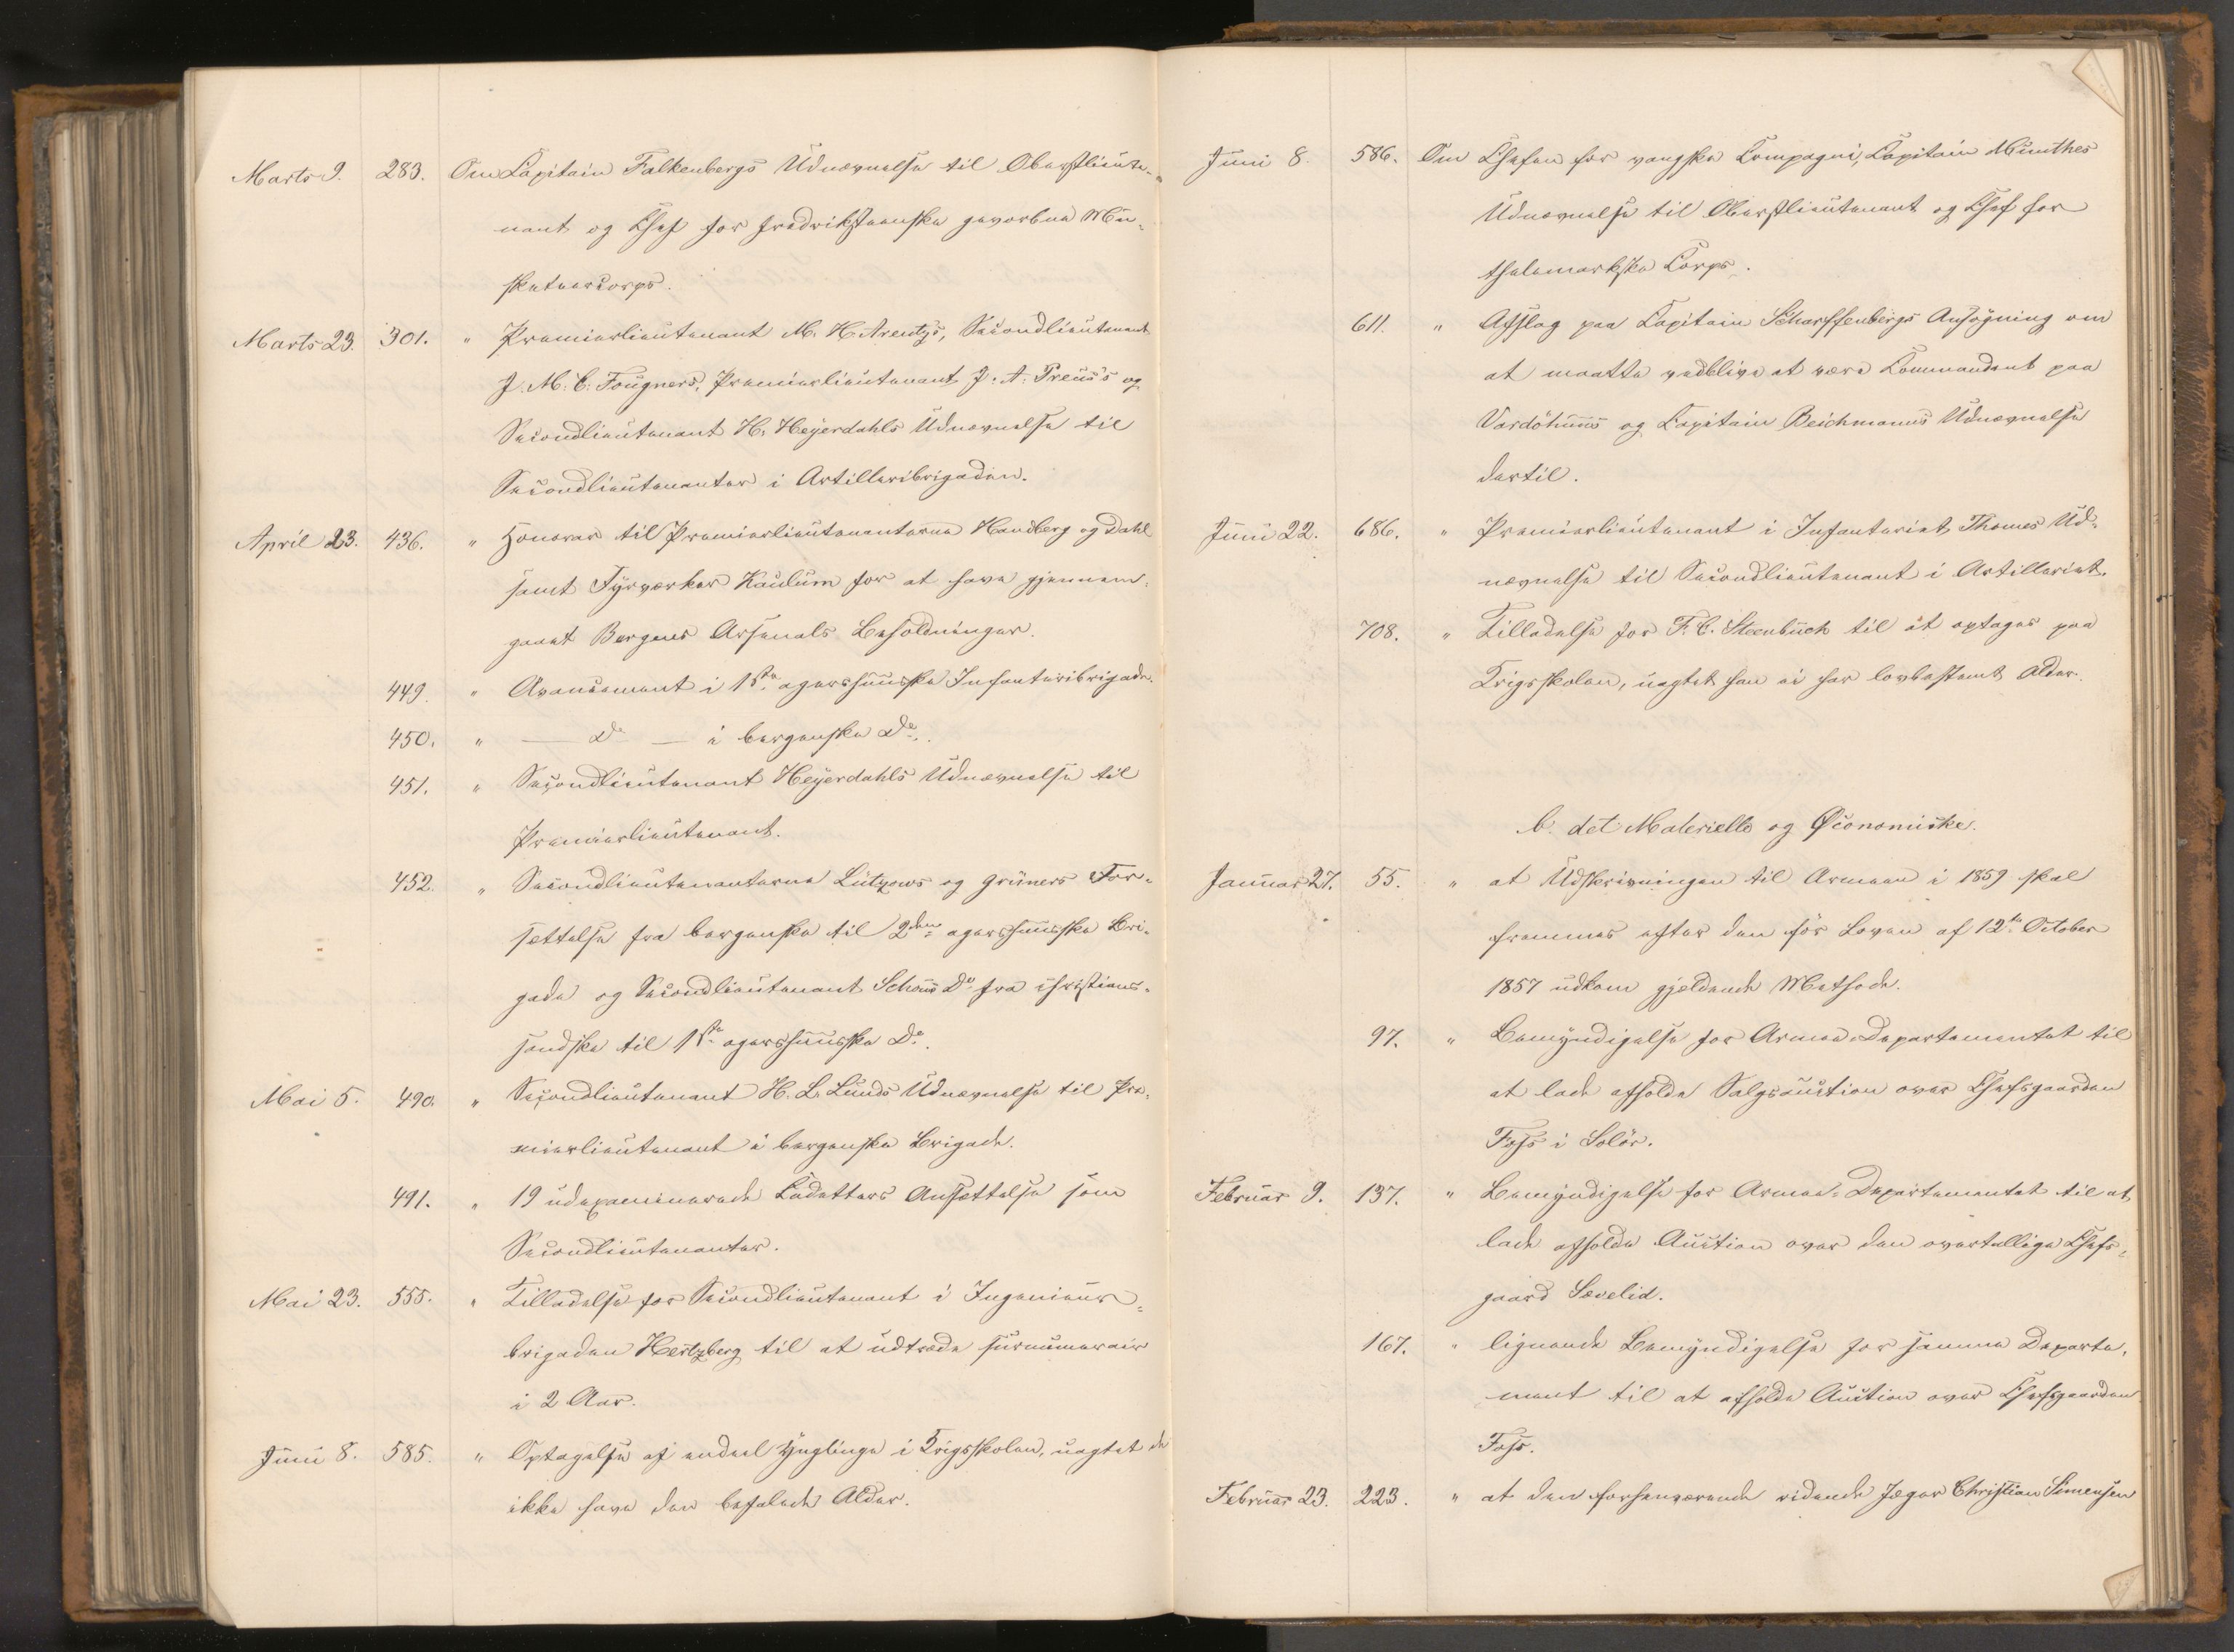 Marts 9. 283. Om Capitain Falkenbergs Udnævnelse til Oberstlieute-
nant og Chef for fredrikstenske gevorbne Mu-
sketeercorps.
Marts 23. 301. " Premierlieutenant M. H. Arentz's, Secondlieutenant
J. M. C. Fougners, Premierlieutenant J. A. Preus's og
Secondlieutenant H. Heyerdahls Udnævnelse til
Secondlieutenanter i Artilleribrigaden.
April 23. 436. " Honorar til Premierlieutenanterne Handberg og Dahl
samt Fyrverker Kaulum for at have gjennem-
gaaet Bergens Arsenals Beholdninger.
449. " Avancement i 1ste agershuusske Infanteribrigade.
450. " — Do — i bergenske Do.
451. " Secondlieutenant Heyerdahls Udnævnelse til
Premierlieutenant.
452. " Secondlieutenanterne Lützows og Grüners For-
sættelse fra bergenske til 2den agershuusske Bri-
gade og Secondlieutenant Schous Do fra christians-
sandske til 1ste agershuusske Do.
Mai 5. 490. " Secondlieutenant H. L. Lunds Udnævnelse til Pre-
mierlieutenant i bergenske Brigade.
491. " 19 udexaminerede Cadetters Ansættelse som
Secondlieutenanter.
Mai 23. 555. " Tilladelse for Secondlieutenant i Ingenieur-
brigaden Hertzberg til at udtræde surnumerair
i 2 Aar.
Juni 8. 585. " Optagelse af endeel Ynglinge i Krigsskolen, uagtet de
ikke have den befalede Alder.
Juni 8. 586. Om Chefen for vangske Compagni, Capitain Munthes
Udnævnelse til Oberstlieutenant og Chef for
thelemarkske Corps.
611. " Afslag paa Capitain Scharffenbergs Ansøgning om
at maatte vedblive at være Kommandant paa
Vardöhuus og Capitain Beichmanns Udnævnelse
dertil.
Juni 22. 686. " Premierlieutenant i Infanteriet Thomes Ud-
nævnelse til Secondlieutenant i Artilleriet.
708. " Tilladelse for F. C. Steenbuch til at optages paa
Krigsskolen, uagtet han ei har lovbestemt Alder.
b. det Materielle og Øconomiske.
Januar 27. 55. " at Udskrivningen til Armeen i 1859 skal
fremmes efter den för Loven af 12te October
1857 udkom gjeldende Methode.
97. " Bemyndigelse for Armee-Departementet til
at lade afholde Salgsauction over Chefsgaarden
Foss i Solör.
Februar 9. 137. " Bemyndigelse for Armee-Departementet til at
lade afholde Auction over den overtallige Chefs-
gaard Sævelid.
167. " lignende Bemyndigelse for samme Departe-
ment til at afholde Auction over Chefsgaarden
Foss.
Februar 23. 223. " at den forhenværende ridende Jæger Christian Simensen